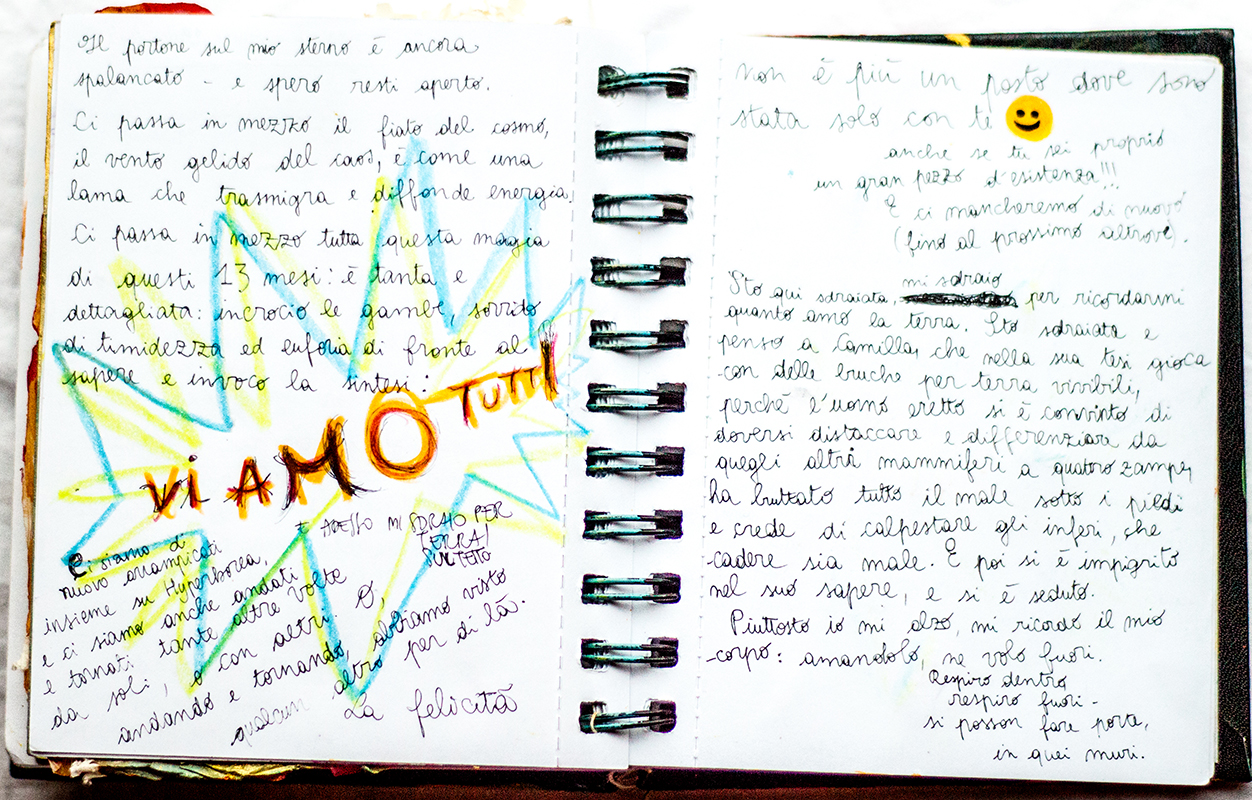 Il portone sul mio sterno è ancora
spalancato - e spero resti aperto.
Ci passa in mezzo il fiato del cosmo,
il vento gelido del caos, è come una
lama che trasmigra e diffonde energia.
Ci passa in mezzo tutta questa magia
di questi 13 mesi: è tanta e
dettagliata: incrocio le gambe, sorrido
di timidezza ed euforia di fronte al
sapere e invoco la sintesi:
Vi AMO TUTTI
E ADESSO MI SDRAIO PER
TERRA/
SUL TETTO
Ci siamo di
nuovo arrampicati
insieme su Hyperborea,
e ci siamo anche andati
e tornati tante altre volte
da soli, o con altri O,
andando e tornando, abbiamo visto
qualcun altro per di là.
La felicità
non è più un posto dove sono
stata solo con te
anche se tu sei proprio
un gran pezzo d'esistenza!!!
E ci mancheremo di nuovo
(fino al prossimo altrove).
mi sdraio
Sto qui sdraiata, per ricordarmi
quanto amo la terra. Sto sdraiata e
penso a Camilla, che nella sua tesi gioca
con delle bruche per terra vivibili,
perché l'uomo eretto si è convinto di
doversi distaccare e differenziare da
quegli altri mammiferi a quattro zampe,
ha buttato tutto il male sotto i piedi
e crede di calpestare gli inferi, che
cadere sia male. E poi si è impigrito
nel suo sapere, e si è seduto.
Piuttosto io mi alzo, mi ricordo il mio
corpo: amandolo, ne volo fuori.
Respiro dentro
respiro fuori -
si posson fare pova,
in quei muri.